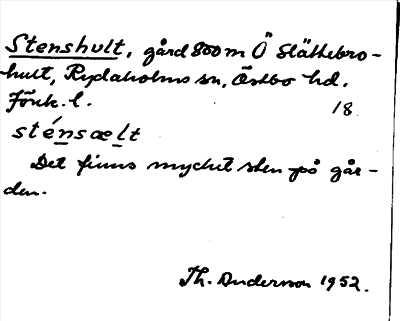 Stenshult, gård 800 m Ö Slättebro-
hult, Rydaholms sn, Östbo hd.
Jönk. l. 18
sténsælt
Det finns mycket sten på går-
den.
Th. Anderson 1952.